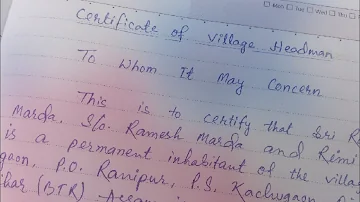 Mon Tue Wed Thu
Certificate of Village Headman
To Whom It May Concern
This is to certify that Sri
Marda, S/o. Ramesh Marda and Remi
is a permanent inhabitant of the
P.O. Ranipur, P.S. Kachugaon
(BTR)